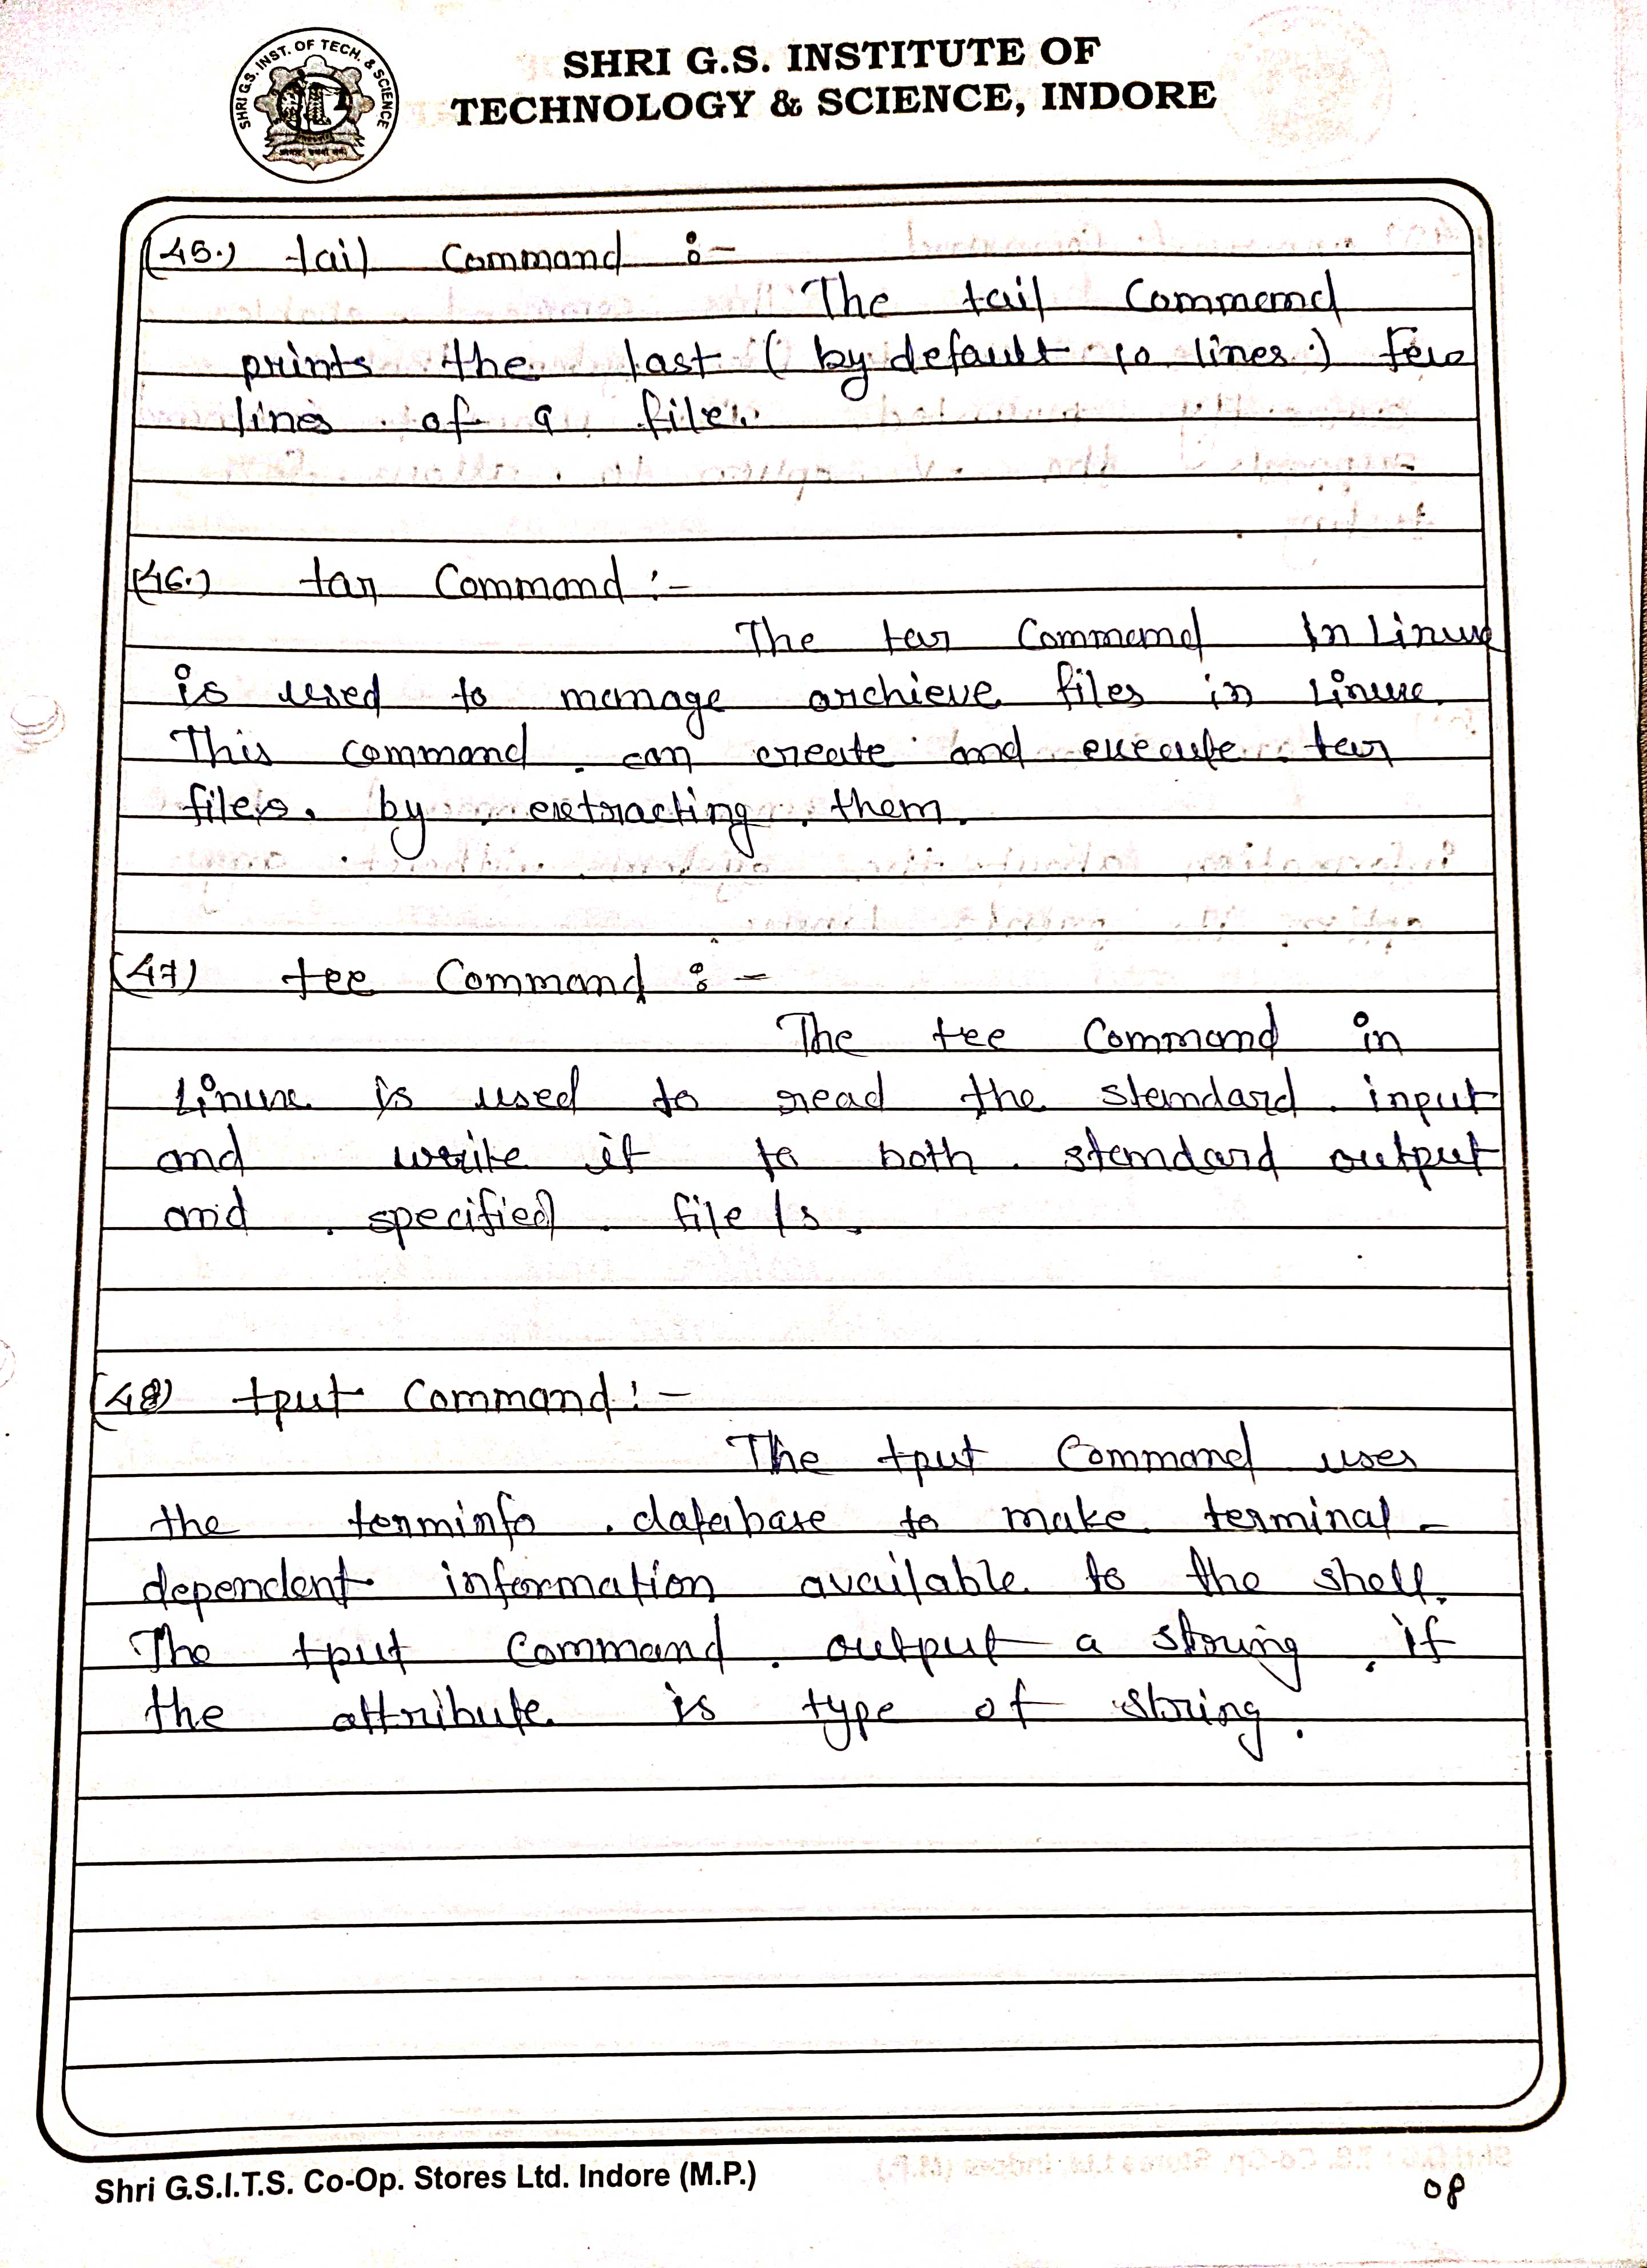 SHRI G.S. INST. OF TECH. & SCIENCE
SHRI G.S. INSTITUTE OF
TECHNOLOGY & SCIENCE, INDORE
(45.) tail Command :-
The tail Command
prints the last (by default 10 lines.) few
lines of a file.
(46.) tar Command :-
The tar Command In Linux
is used to manage archieve files in Linux.
This command can create and execute tar
files. by extracting them.
(47) tee Command :-
The tee Command in
Linux is used to read the standard input
and write it to both standard output
and specified file/s.
(48) tput Command :-
The tput Command uses
the terminfo database to make terminal-
dependent information available to the shell.
The tput Command output a string, if
the attribute is type of string.
Shri G.S.I.T.S. Co-Op. Stores Ltd. Indore (M.P.)
08